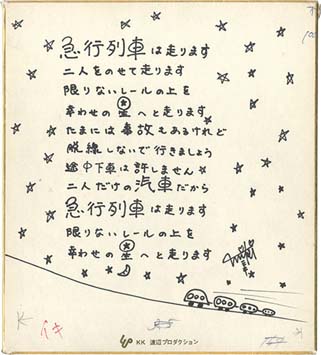 急行列車は走ります
二人をのせて走ります
限りないレールの上を
幸わせの星へと走ります
たまには事故もあるけれど
脱線しないで行きましょう
途中下車は許しません
二人だけの汽車だから
急行列車は走ります
限りないレールの上を
幸わせの星へと走ります
KK 渡辺プロダクション